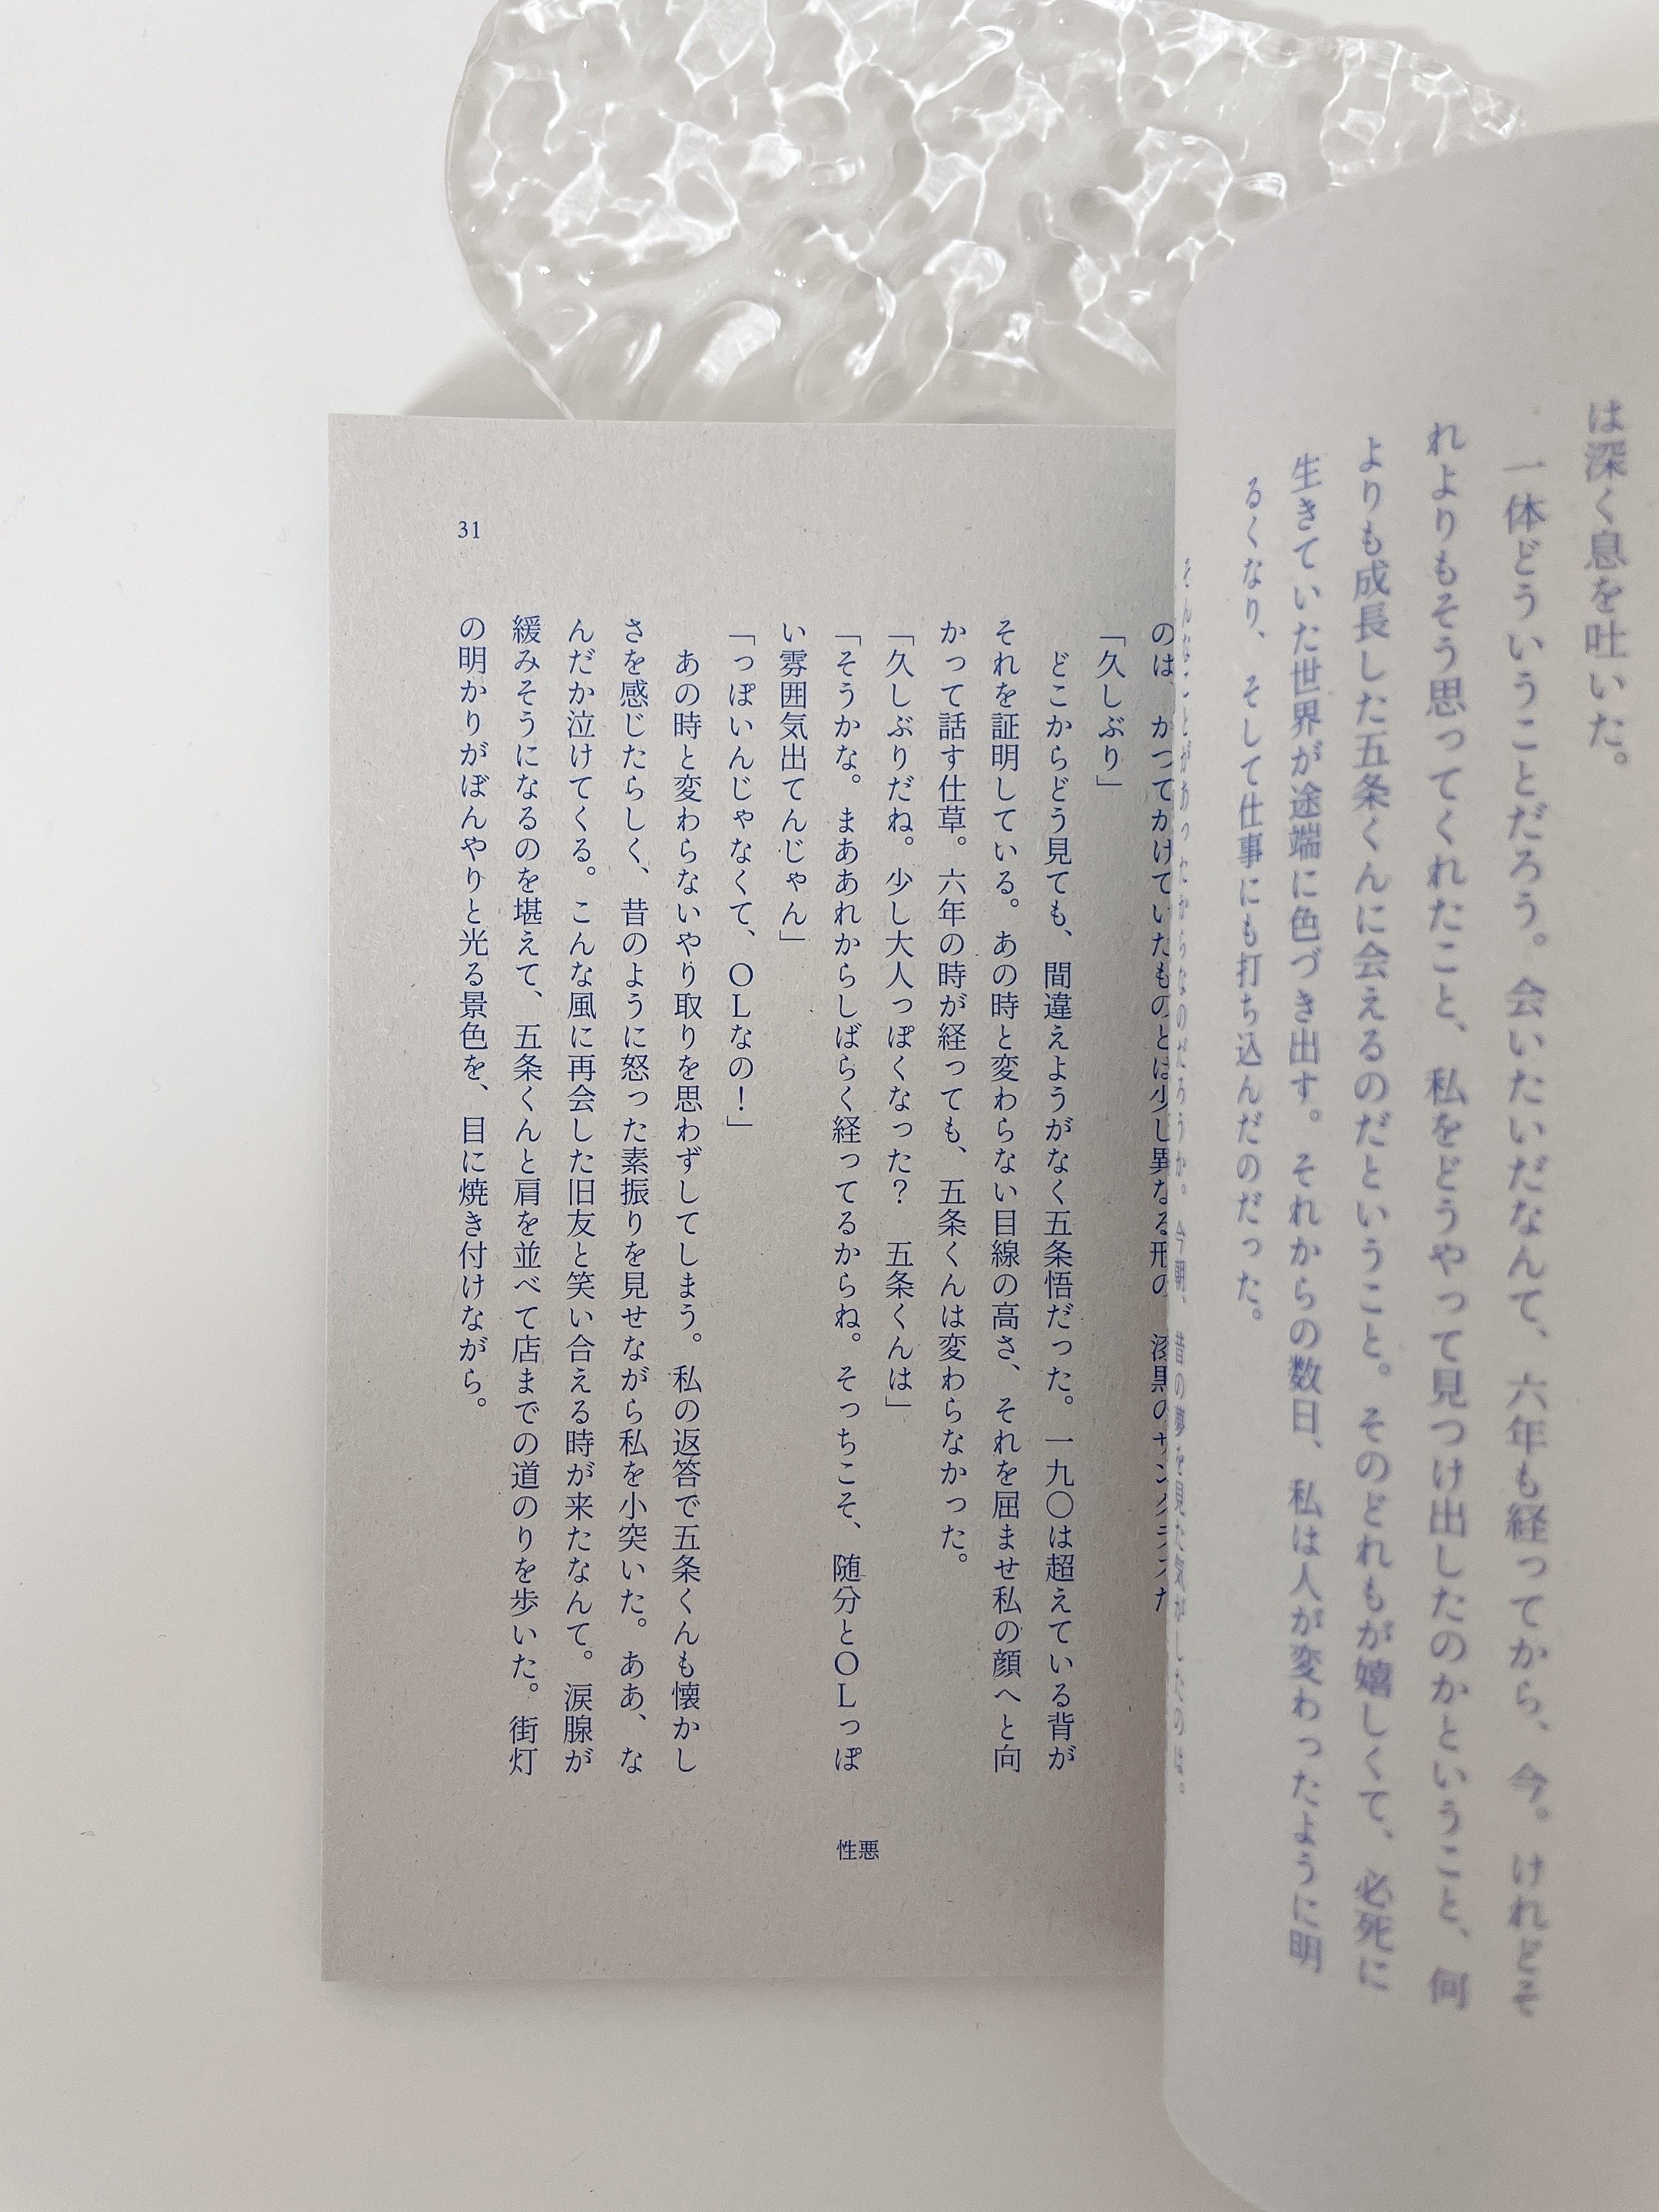 は深く息を吐いた。
一体どういうことだろう。会いたいだなんて、六年も経ってから、今。けれどそ
れよりもそう思ってくれたこと、私をどうやって見つけ出したのかということ、何
よりも成長した五条くんに会えるのだということ。そのどれもが嬉しくて、必死に
生きていた世界が途端に色づき出す。それからの数日、私は人が変わったように明
るくなり、そして仕事にも打ち込んだのだった。
そんなことがあったからなのだろうか。今朝、昔の夢を見た気がしたのは。
のは、かつてかけていたものとは少し異なる形の、漆黒のサングラスだ
「久しぶり」
どこからどう見ても、間違えようがなく五条悟だった。一九〇は超えている背が
それを証明している。あの時と変わらない目線の高さ、それを屈ませ私の顔へと向
かって話す仕草。六年の時が経っても、五条くんは変わらなかった。
「久しぶりだね。少し大人っぽくなった？　五条くんは」
「そうかな。まああれからしばらく経ってるからね。そっちこそ、随分とＯＬっぽ
い雰囲気出てんじゃん」
「っぽいんじゃなくて、ＯＬなの！」
あの時と変わらないやり取りを思わずしてしまう。私の返答で五条くんも懐かし
さを感じたらしく、昔のように怒った素振りを見せながら私を小突いた。ああ、な
んだか泣けてくる。こんな風に再会した旧友と笑い合える時が来たなんて。涙腺が
緩みそうになるのを堪えて、五条くんと肩を並べて店までの道のりを歩いた。街灯
の明かりがぼんやりと光る景色を、目に焼き付けながら。
31
性悪